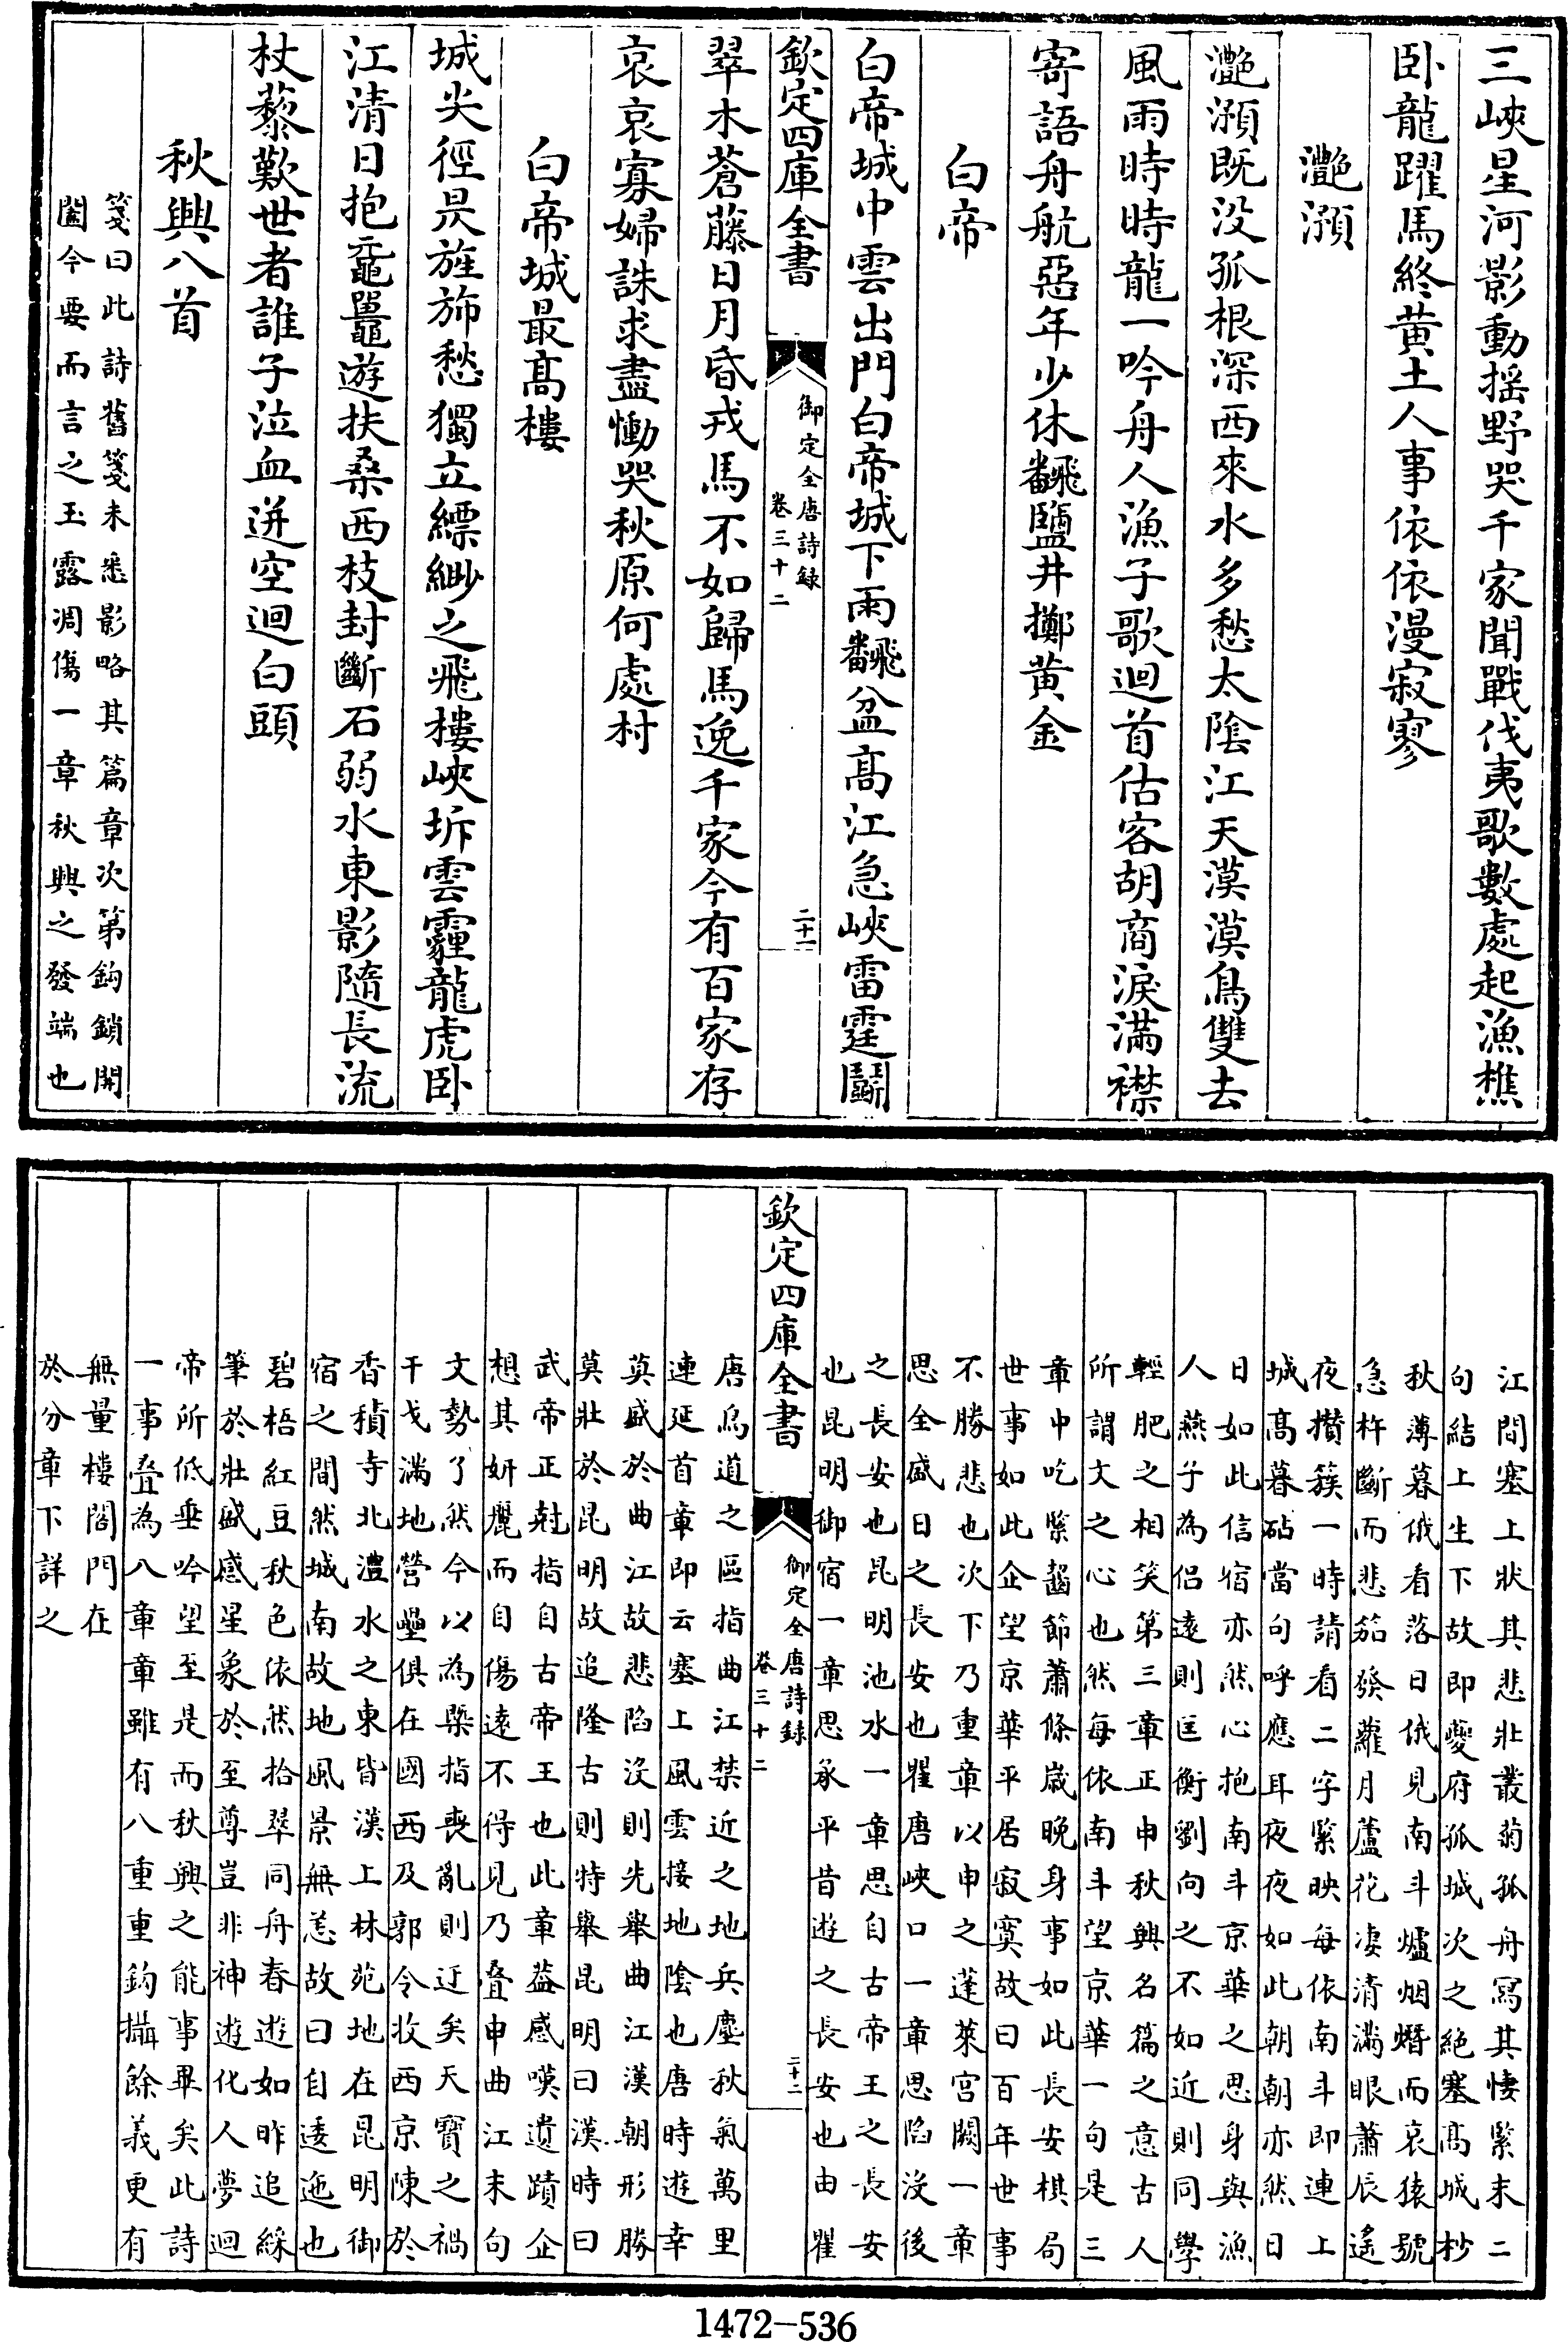 三峽星河影動揺野哭千家聞戰伐夷歌數處起漁樵
卧龍躍馬終黄土人事依依漫寂寥
灔澦
灔澦既没孤根深西來水多愁太隂江天漠漠鳥雙去
風雨時時龍一吟舟人漁子歌迴首估客胡商淚滿襟
寄語舟航惡年少休飜鹽井擲黄金
白帝
白帝城中雲出門白帝城下雨飜盆髙江急峽雷霆鬭
欽定四庫全書
御定全唐詩録
卷三十二
二十一
翠木蒼藤日月昏戎馬不如歸馬逸千家今有百家存
哀哀寡婦誅求盡慟哭秋原何處村
白帝城最髙樓
城尖徑昃旌斾愁獨立縹緲之飛樓峽坼雲霾龍虎卧
江清日抱黿鼉遊扶桑西枝封斷石弱水東影隨長流
杖藜歎世者誰子泣血迸空迴白頭
秋興八首
箋曰此詩舊箋未悉影略其篇章次第鈎鎖開
闔今要而言之玉露凋傷一章秋興之發端也
江間塞上狀其悲壯叢菊孤舟寫其悽緊末二
句結上生下故即夔府孤城次之絶塞髙城杪
秋薄暮俄看落日俄見南斗爐烟熸而哀猿號
急杵斷而悲笳發蘿月蘆花淒清滿眼蕭辰遙
夜攅簇一時請看二字緊映每依南斗即連上
城髙暮砧當句呼應耳夜夜如此朝朝亦然日
日如此信宿亦然心抱南斗京華之思身與漁
人燕子為侣逺則匡衡劉向之不如近則同學
輕肥之相笑第三章正申秋興名篇之意古人
所謂文之心也然每依南斗望京華一句是三
章中吃緊齧節蕭條嵗晚身事如此長安棋局
世事如此企望京華平居寂寞故曰百年世事
不勝悲也次下乃重章以申之蓬萊宫闕一章
思全盛日之長安也瞿唐峽口一章思陷没後
之長安也昆明池水一章思自古帝王之長安
也昆明御宿一章思承平昔遊之長安也由瞿
欽定四庫全書
御定全唐詩録
卷三十二
二十二
唐鳥道之區指曲江禁近之地兵塵秋氣萬里
連延首章即云塞上風雲接地隂也唐時遊幸
莫盛於曲江故悲陷没則先舉曲江漢朝形勝
莫壯於昆明故追隆古則特舉昆明曰漢時曰
武帝正尅指自古帝王也此章葢感嘆遺蹟企
想其妍麗而自傷逺不得見乃叠申曲江末句
文勢了然今以為槩指喪亂則迂矣天寶之禍
干戈滿地營壘俱在國西及郭令收西京陳於
香積寺北澧水之東皆漢上林苑地在昆明御
宿之間然城南故地風景無恙故曰自逶迤也
碧梧紅豆秋色依然拾翠同舟春遊如昨追綵
筆於壯盛感星象於至尊豈非神遊化人夢迴
帝所低垂吟望至是而秋興之能事畢矣此詩
一事叠為八章章雖有八重重鈎攝餘義更有
無量樓閣門在
於分章下詳之
1472-536